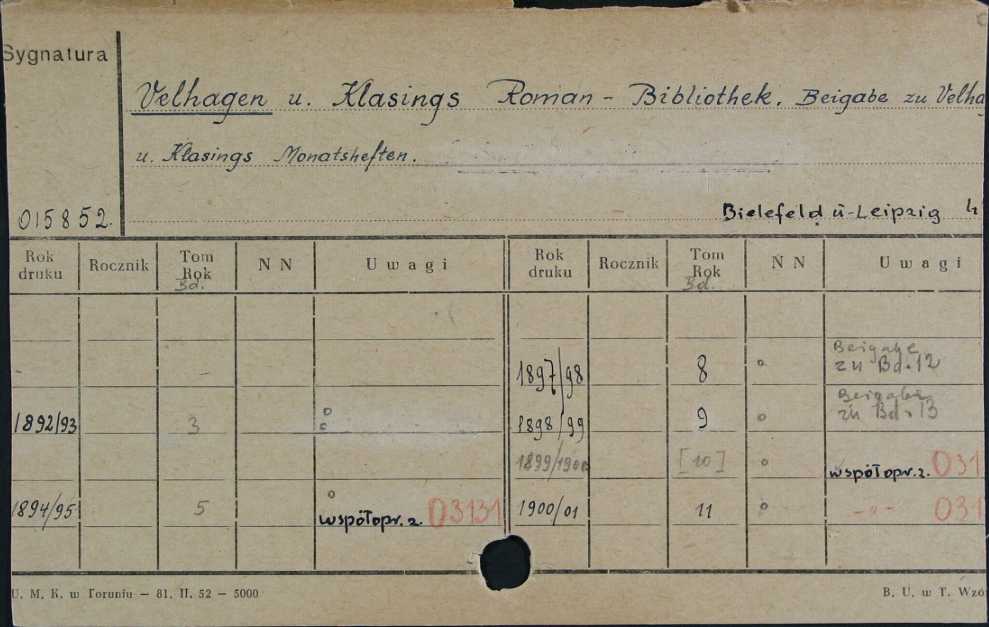 Sygnatura
Velhagen u. Klasings Roman - Bibliothek. Beigabe zu Velha
u. Klasings Monatsheften.
015852.
Bielefeld u-Leipzig 4
Rok druku Rocznik Tom Rok Bd. N N Uwagi Rok druku Rocznik Tom Rok Bd. N N Uwagi
1897/98 8 Beigabe zu Bd. 12
1892/93 3 1898/99 9 Beigabe zu Bd. 13
1899/1900 [10] współopr. z. 031
1894/95 5 współopr. z. 03131 1900/01 11 -"- 031
U. M. K. w Toruniu — 81. II. 52 — 5000
B. U. w T. Wzó